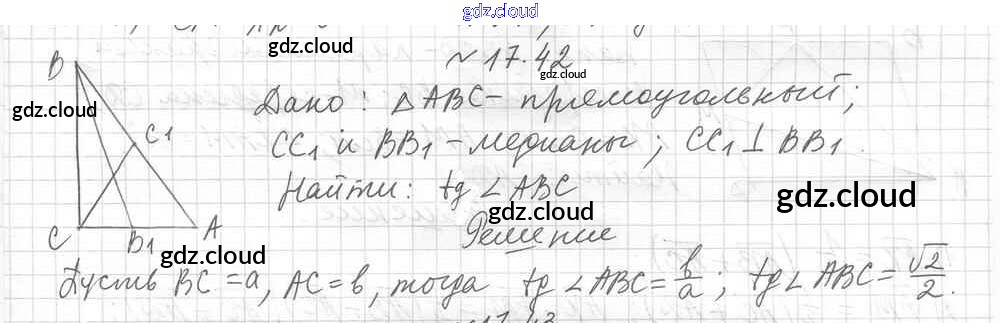 gdz.cloud
gdz.cloud
№17.42
gdz.cloud
B
gdz.cloud
Дано: △ABC- прямоугольный;
C1
CC1 и BB1 -медианы; CC1⊥BB1.
Найти: tg∠ABC
gdz.cloud
gdz.cloud
C B1 A
Решение
gdz.cloud
Пусть BC=a, AC=b, тогда tg∠ABC=b/a; tg∠ABC=√2/2.